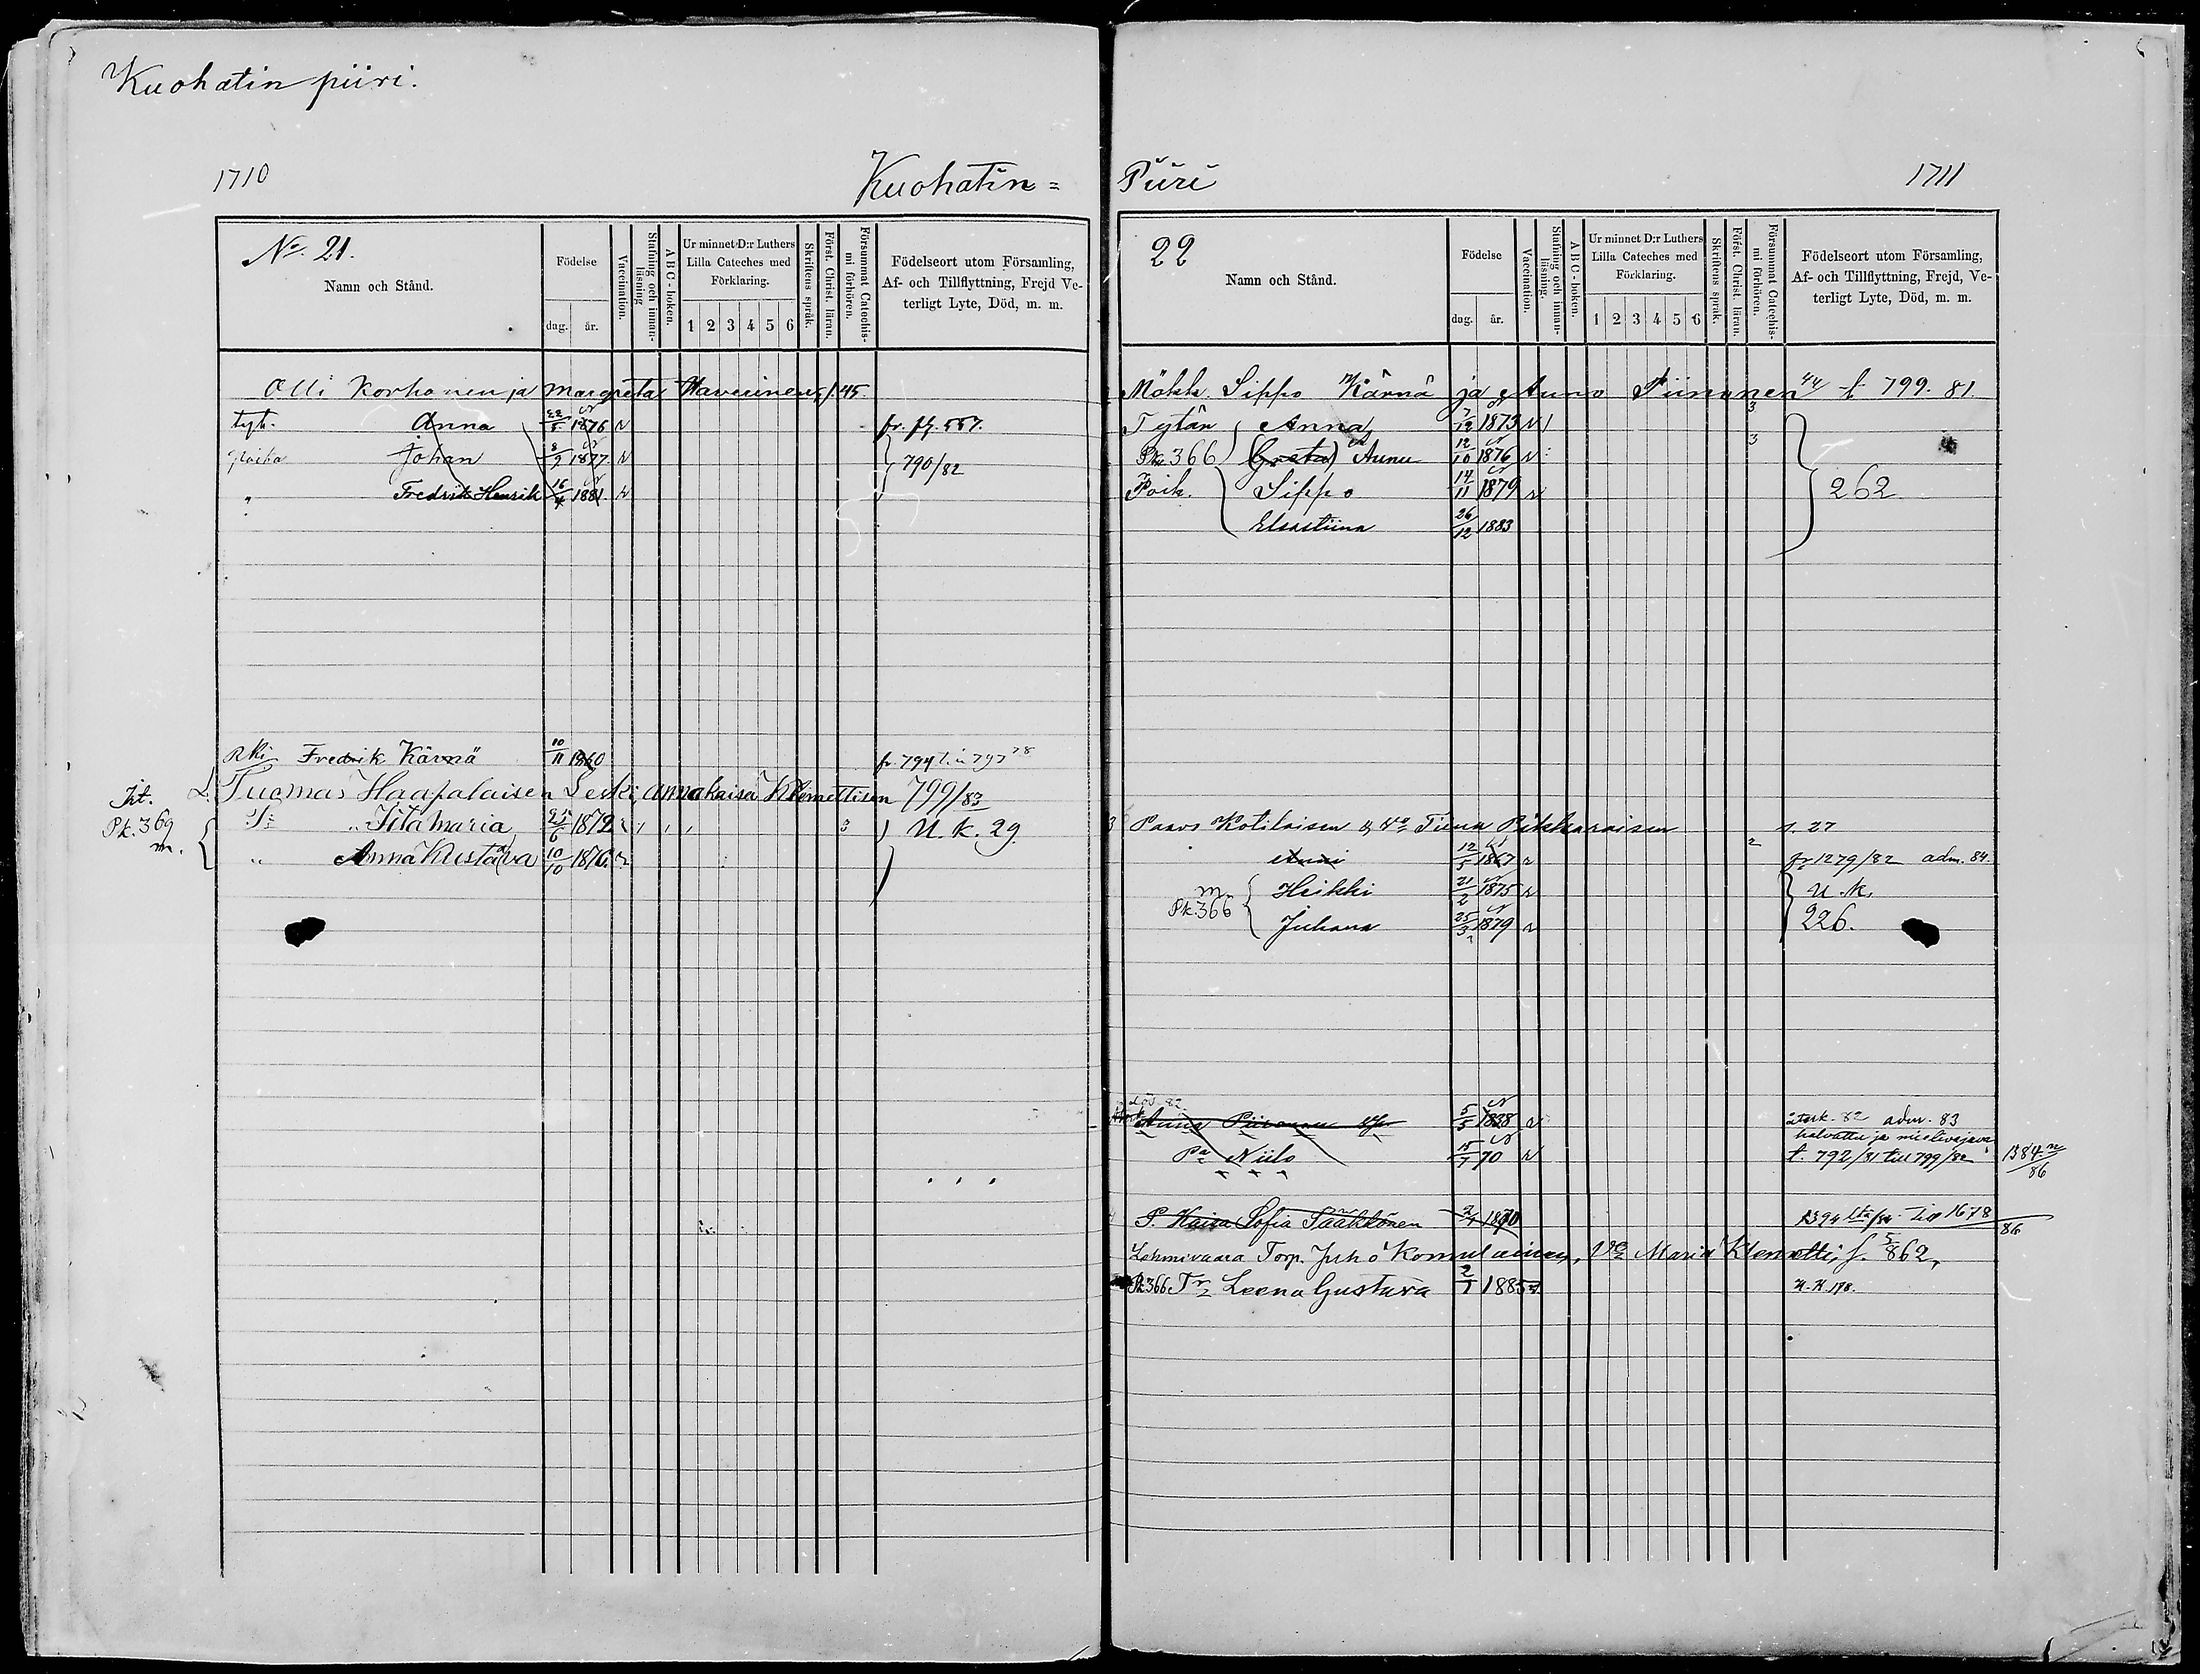 Kuohatin piiri.
1710
Kuohatin=
No. 21.
Namn och Stånd.
Födelse
dag. år.
Vaccination.
Stafning och innanläsning
A B C-boken.
Ur minnet D:r Luthers Lilla Cateches med Förklaring.
1 2 3 4 5 6
Skriftens språk.
Först. Christ. läran.
Försummat Catechismi förhören.
Födelseort utom Församling, Af- och Tillflyttning, Frejd Veterligt Lyte, Död, m. m.
Olli Korhonen ja Margreta s. 45.
tyt. Anna 1876 fr. 557.
poika Johan 8/9 1877 790/82
" Fredrik Henrik 16/4 1881
Rki Fredrik Kärnä 10/11 1860 fr. 794
L. Tuomas Haapalaisen Leski, Annakaisa Klemettisen 799/83
Pk. 369
m.
Iitamaria 25/6 1872 3 U. K. 29.
" Anna Kustava 10/10 1876
Piiri
1711
22
Namn och Stånd.
Födelse
dag. år.
Vaccination.
Stafning och innanläsning.
A B C-boken.
Ur minnet D:r Luthers Lilla Cateches med Förklaring.
1 2 3 4 5 6
Skriftens språk.
Först. Christ. läran.
Försummat Catechismi förhören.
Födelseort utom Församling, Af- och Tillflyttning, Frejd, Veterligt Lyte, Död, m. m.
Mökk. Sippo Kärnä ja Anna 44 f 799. 81
Tytär Anna 7/12 1873 3
Pk. 366 (Greta) 12/10 1876 3
Poik. Sippo 14/11 1879 262
Elsastiina 26/12 1883
Paavo Kotilaisen & Tiina Pikkaraisen s. 27
Anni 12/5 1867 2 fr 1279/82 adm. 84.
m. Heikki 21/2 1875 U. K.
Pk. 366 Juhana 25/3 1879 226.
död 82
5/5 1838 82 adm. 83
halvattu ja
Pa Niilo 15/7 70 f. 792/81 till 799/82 1384/86
P. Kaisa Sofia Pääkkönen 2/7 1870 1678/86
Lehmivaara Torp. Juho Komulainen, Maria Klemetti, s. 862,
Pk 366 Tr Leena Gustava 2/1 1885 198.